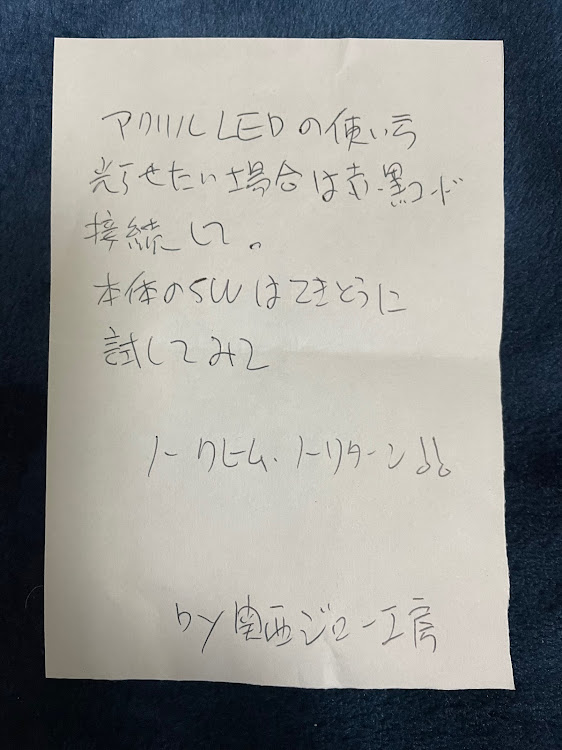 アクリルLEDの使い方
光らせたい場合は赤・黒コード
接続して。
本体のSWはてきとうに
試してみて
ノークレーム・ノーリターン♪♪
by関西ジロー工房